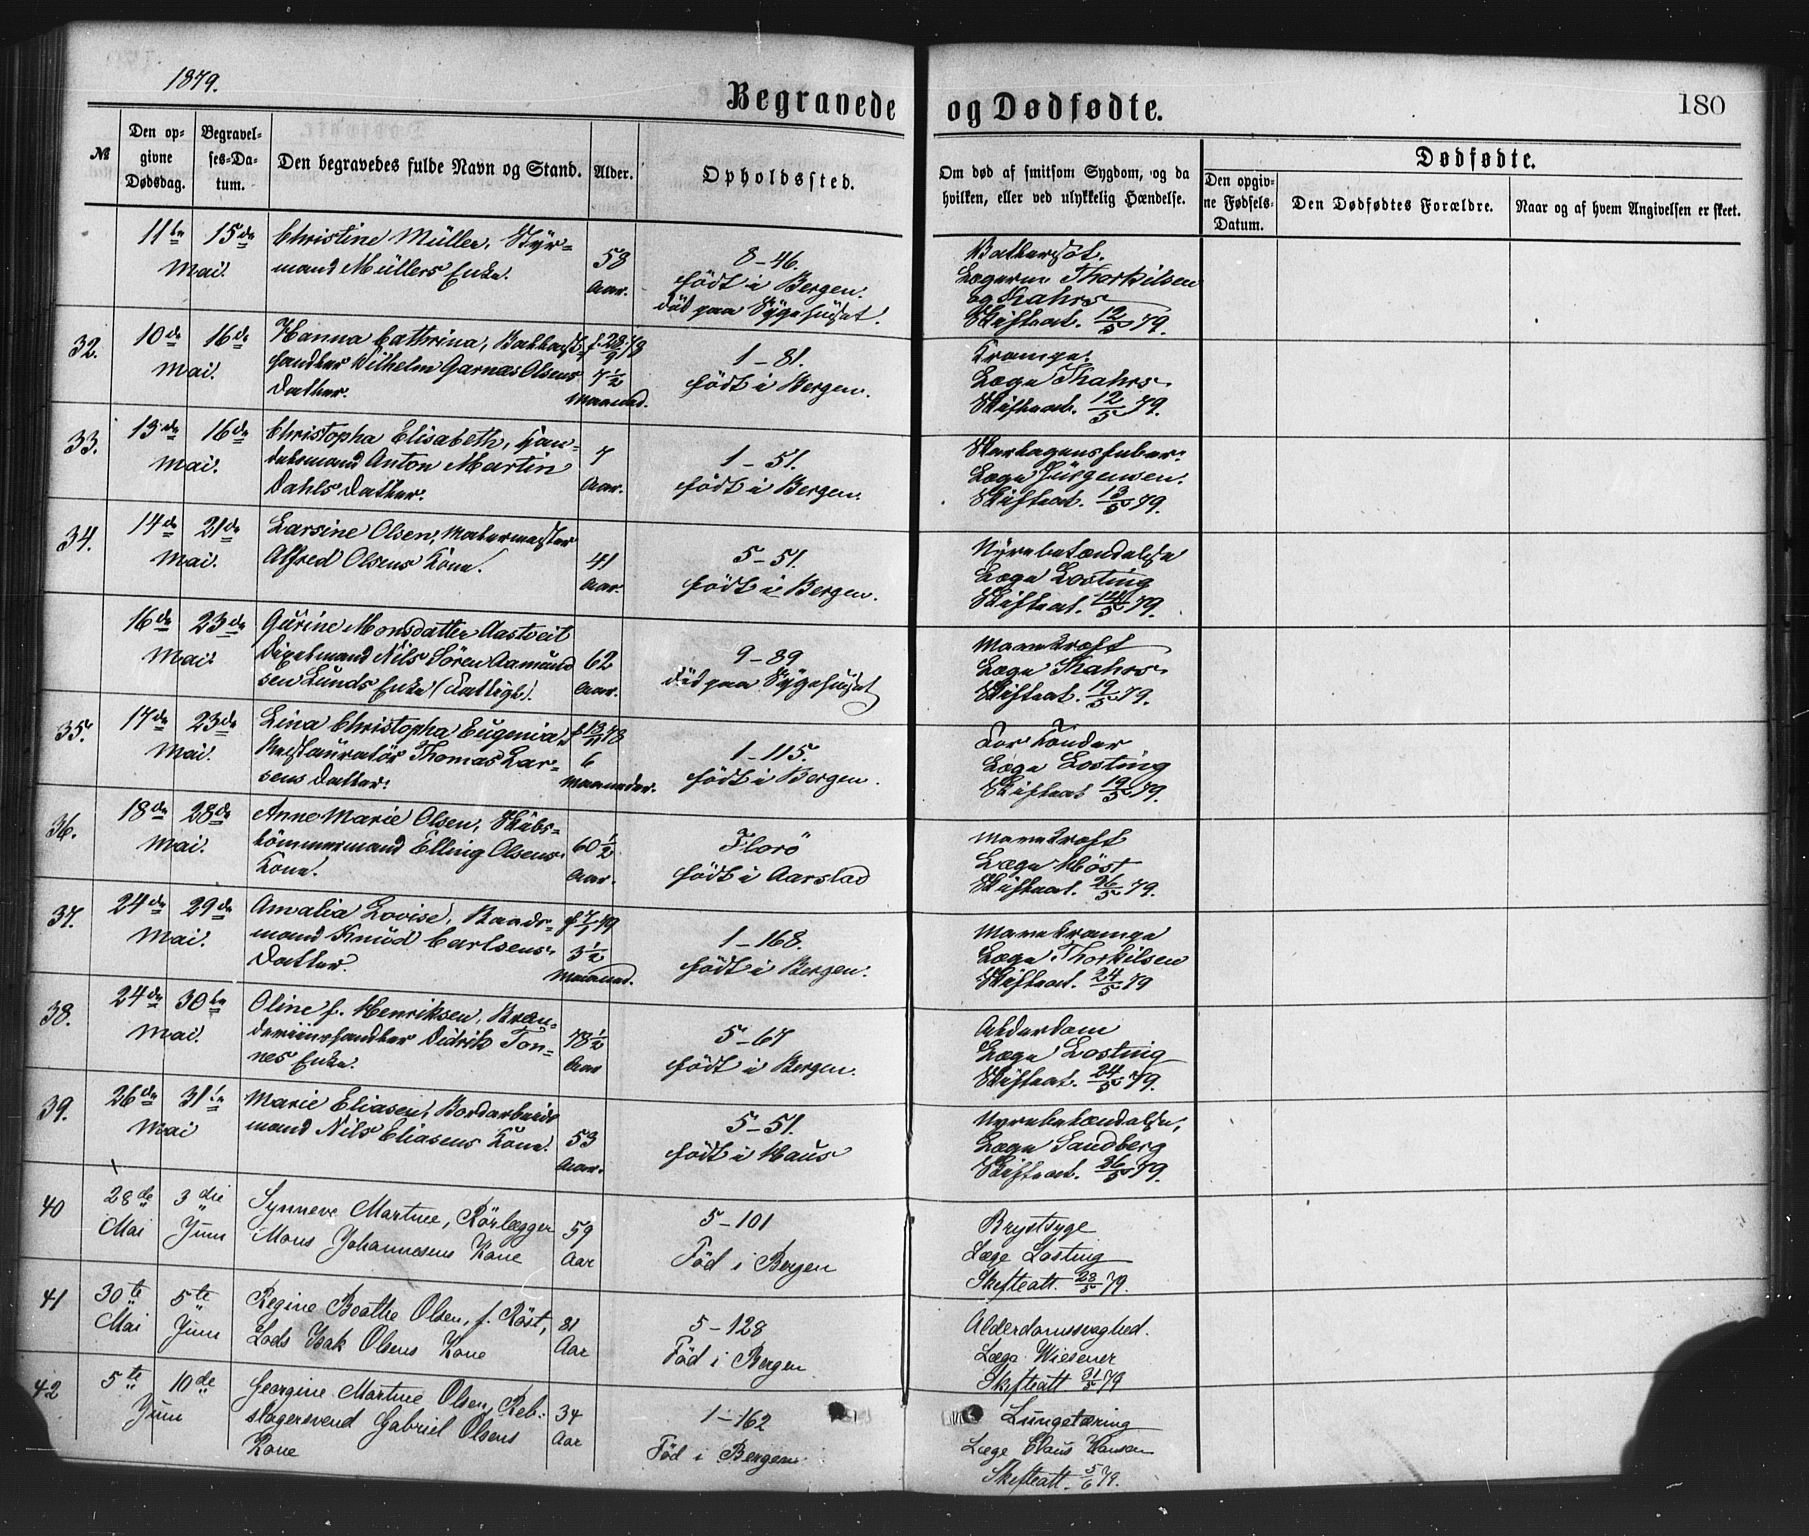 1879.
Begravede og Dødfødte.
180
№
Den op-
givne
Dødsdag.
Begravel-
ses-Da-
tum.
Den begravedes fulde Navn og Stand.
Alder.
Opholdssted.
Om død af smitsom Sygdom, og da
hvilken, eller ved ulykkelig Hændelse.
Dødfødte.
Den opgiv-
ne Fødsels-
Datum.
Den Dødfødtes Forældre.
Naar og af hvem Angivelsen er skeet.
11te Mai.
15de
Christine Müller, Styr-
mand Müllers Enke.
58
Aar.
8-46.
født i Bergen.
död paa Sygehuset.
Vattersot.
Lægerne Thorkilsen
og Krahrs
Skifteat. 12/5 79.
32.
10de Mai.
16de
Hanna Cathrina,
handler Wilhelm Garnæs Olsens
Datter.
f. 28/9 78
7½
Maaned.
1-81.
født i Bergen.
Krampe.
Læge Krahrs
Skifteat. 12/5 79.
33.
13de Mai.
16de
Christopha Elisabeth, Han-
delsmand Anton Martin
Dahls Datter.
7
Aar.
1-51.
født i Bergen.
Skarlagensfeber.
Læge Jürgensen.
Skifteat. 13/5 79.
34.
14de Mai.
21de
Larsine Olsen, Malermester
Alfred Olsens Kone.
41
Aar.
5-51.
født i Bergen.
Nyrebetændelse
Læge Losting
Skifteat. 14/5 79.
16de Mai.
23de
Gürine Monsdatter Aastveit
Nils Sören Aamund
sen Lunds Enke (Fattigl.)
62
Aar.
9-89
död paa Sygehuset
Mavekræft
Læge Krahrs
Skifteat. 19/5 79.
35.
17de Mai.
23de
Lina Christopha Eugenia,
Restauratör Thomas Lar-
sens Datter.
f. 13/11 78
6
Maaneder.
1-115.
født i Bergen.
For Tænder
Læge Losting
Skifteat 19/5 79.
36.
18de Mai.
28de
Anne Marie Olsen, Skibs-
tömmermand Elling Olsens
Kone.
60½
Aar.
Florö
født i Aarstad
Mavekræft
Læge Höst
Skifteat. 26/5 79.
37.
24de Mai.
29de
Amalia Lovise, Baads-
mand Knüd Carlsens
Datter.
f 7/2 79
3½
Maaned.
1-168.
født i Bergen.
Mavekrampe
Læge Thorkilsen
Skifteat. 24/5 79
38.
24de Mai.
30te
Oline f. Henriksen, Bræn-
deviinshandler Didrik Ton-
nes Enke.
78½
Aar
5-67
født i Bergen.
Alderdom
Læge Losting
Skifteat. 24/5 79.
39.
26de Mai
31te
Marie Eliasen, Bordarbeids
mand Nils Eliasens Kone.
53
Aar.
5-51.
født i Haus
Nyrebetændelse,
Læge Sandberg
Skifteat. 26/5 79.
40
28de
Mai
3die
Juni
Synneve Martine, Rörlægger
Mons Johannesens Kone
59
Aar
5-101
Föd i Bergen
Brystsyge
Læge Losting
Skifteatt. 28/5 79.
41
30te
Mai
5te
Juni
Regine Boathe Olsen, f. Röst,
Lods Isak Olsens Kone
81
Aar
5-128
Föd i Bergen
Alderdomssvaghed.
Læge Wiesener
Skifteatt 31/5 79
42
5te Juni
10de
Georgine Martine Olsen, Reb-
slagersvend Gabriel Olsens
Kone
34
Aar
1-162
Föd i Bergen
Lungetæring
Læge Claus Hansen
Skifteatt. 5/6 79.